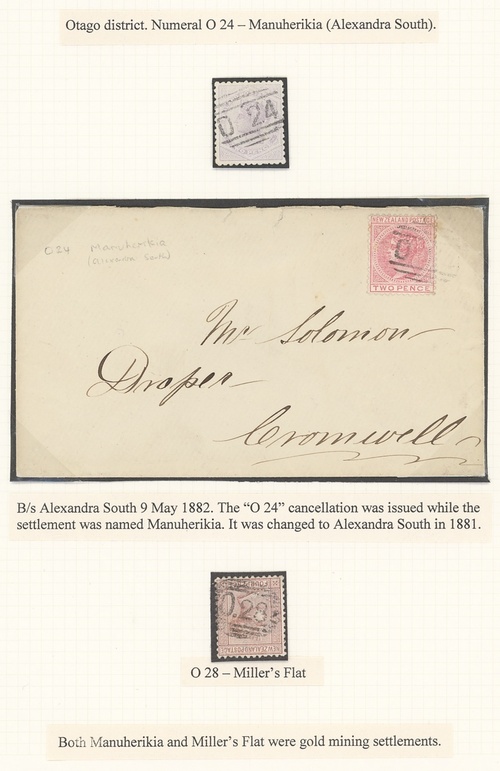 Otago district. Numeral O 24 – Manuherikia (Alexandra South).
O 24
O24 Manuherikia
(Alexandra South)
NEW ZEALAND POSTAGE
O
TWO PENCE
Mr Solomon
Draper
Cromwell
B/s Alexandra South 9 May 1882. The “O 24” cancellation was issued while the
settlement was named Manuherikia. It was changed to Alexandra South in 1881.
O.28
NEW ZEALAND POSTAGE
O 28 – Miller’s Flat
Both Manuherikia and Miller’s Flat were gold mining settlements.